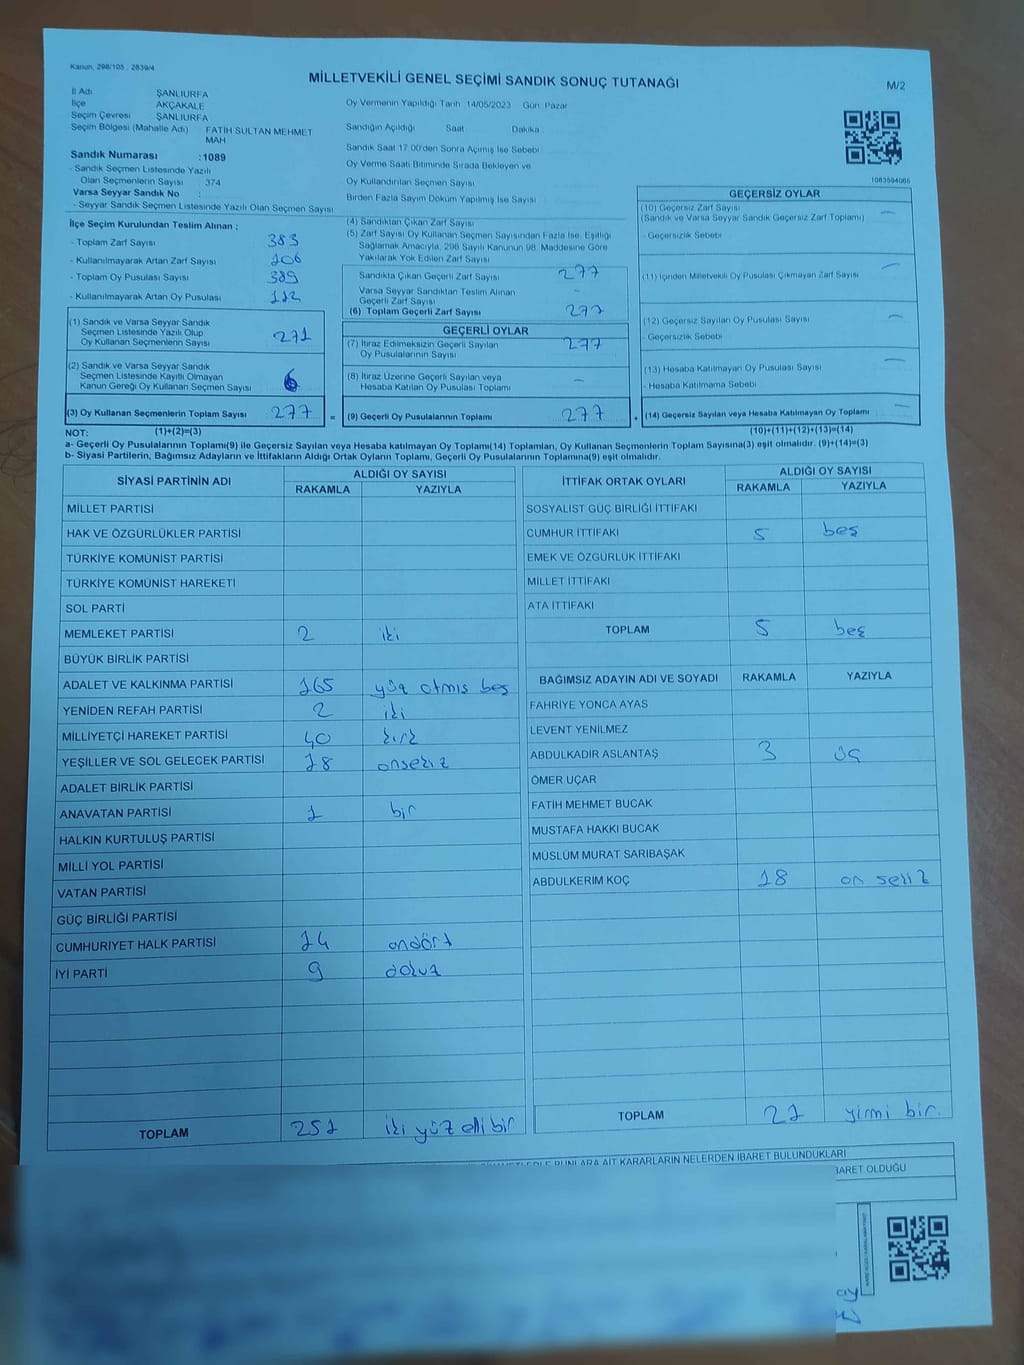 Kanun, 298/105 , 2839/4
MİLLETVEKİLİ GENEL SEÇİMİ SANDIK SONUÇ TUTANAĞI
M/2
İl Adı ŞANLIURFA
İlçe AKÇAKALE
Seçim Çevresi ŞANLIURFA
Seçim Bölgesi (Mahalle Adı) FATİH SULTAN MEHMET MAH
Sandık Numarası :1089
- Sandık Seçmen Listesinde Yazılı
Olan Seçmenlerin Sayısı 374
Varsa Seyyar Sandık No :
- Seyyar Sandık Seçmen Listesinde Yazılı Olan Seçmen Sayısı
Oy Vermenin Yapıldığı Tarih 14/05/2023 Gün: Pazar
Sandığın Açıldığı Saat Dakika
Sandık Saat 17:00'den Sonra Açımış İse Sebebi
Oy Verme Saati Bitiminde Sırada Bekleyen ve
Oy Kullandırılan Seçmen Sayısı
Birden Fazla Sayım Döküm Yapılmış İse Sayısı
1083594065
İlçe Seçim Kurulundan Teslim Alınan ;
- Toplam Zarf Sayısı 383
- Kullanılmayarak Artan Zarf Sayısı 106
- Toplam Oy Pusulası Sayısı 389
- Kullanılmayarak Artan Oy Pusulası 112
(1) Sandık ve Varsa Seyyar Sandık
Seçmen Listesinde Yazılı Olup
Oy Kullanan Seçmenlerin Sayısı 271
(2) Sandık ve Varsa Seyyar Sandık
Seçmen Listesinde Kayıtlı Olmayan
Kanun Gereği Oy Kullanan Seçmen Sayısı 6
(3) Oy Kullanan Seçmenlerin Toplam Sayısı 277 =
(4) Sandıktan Çıkan Zarf Sayısı
(5) Zarf Sayısı Oy Kullanan Seçmen Sayısından Fazla İse, Eşitliği
Sağlamak Amacıyla, 298 Sayılı Kanunun 98. Maddesine Göre
Yakılarak Yok Edilen Zarf Sayısı
Sandıkta Çıkan Geçerli Zarf Sayısı 277
Varsa Seyyar Sandıktan Teslim Alınan
Geçerli Zarf Sayısı -
(6) Toplam Geçerli Zarf Sayısı 277
GEÇERLİ OYLAR
(7) İtiraz Edilmeksizin Geçerli Sayılan
Oy Pusulalarının Sayısı 277
(8) İtiraz Üzerine Geçerli Sayılan veya
Hesaba Katılan Oy Pusulası Toplamı -
(9) Geçerli Oy Pusulalarının Toplamı 277 +
GEÇERSİZ OYLAR
(10) Geçersiz Zarf Sayısı -
(Sandık ve Varsa Seyyar Sandık Geçersiz Zarf Toplamı)
- Geçersizlik Sebebi
(11) İçinden Milletvekili Oy Pusulası Çıkmayan Zarf Sayısı -
(12) Geçersiz Sayılan Oy Pusulası Sayısı -
- Geçersizlik Sebebi
(13) Hesaba Katılmayan Oy Pusulası Sayısı -
- Hesaba Katılmama Sebebi
(14) Geçersiz Sayılan veya Hesaba Katılmayan Oy Toplamı -
NOT: (1)+(2)=(3) (10)+(11)+(12)+(13)=(14)
a- Geçerli Oy Pusulalarının Toplamı(9) ile Geçersiz Sayılan veya Hesaba katılmayan Oy Toplam(14) Toplamları, Oy Kullanan Seçmenlerin Toplam Sayısına(3) eşit olmalıdır. (9)+(14)=(3)
b- Siyasi Partilerin, Bağımsız Adayların ve İttifakların Aldığı Ortak Oyların Toplamı, Geçerli Oy Pusulalarının Toplamına(9) eşit olmalıdır.
SİYASİ PARTİNİN ADI ALDIĞI OY SAYISI
RAKAMLA YAZIYLA
MİLLET PARTİSİ
HAK VE ÖZGÜRLÜKLER PARTİSİ
TÜRKİYE KOMÜNİST PARTİSİ
TÜRKİYE KOMÜNİST HAREKETİ
SOL PARTİ
MEMLEKET PARTİSİ 2 iki
BÜYÜK BİRLİK PARTİSİ
ADALET VE KALKINMA PARTİSİ 165 yüz atmış beş
YENİDEN REFAH PARTİSİ 2 iki
MİLLİYETÇİ HAREKET PARTİSİ 40 kırk
YEŞİLLER VE SOL GELECEK PARTİSİ 18 onsekiz
ADALET BİRLİK PARTİSİ
ANAVATAN PARTİSİ 1 bir
HALKIN KURTULUŞ PARTİSİ
MİLLİ YOL PARTİSİ
VATAN PARTİSİ
GÜÇ BİRLİĞİ PARTİSİ
CUMHURİYET HALK PARTİSİ 14 ondört
İYİ PARTİ 9 dokuz
TOPLAM 251 iki yüz elli bir
İTTİFAK ORTAK OYLARI ALDIĞI OY SAYISI
RAKAMLA YAZIYLA
SOSYALİST GÜÇ BİRLİĞİ İTTİFAKI
CUMHUR İTTİFAKI 5 beş
EMEK VE ÖZGÜRLÜK İTTİFAKI
MİLLET İTTİFAKI
ATA İTTİFAKI
TOPLAM 5 beş
BAĞIMSIZ ADAYIN ADI VE SOYADI RAKAMLA YAZIYLA
FAHRİYE YONCA AYAS
LEVENT YENİLMEZ
ABDULKADİR ASLANTAŞ 3 üç
ÖMER UÇAR
FATİH MEHMET BUCAK
MUSTAFA HAKKI BUCAK
MÜSLÜM MURAT SARIBAŞAK
ABDULKERİM KOÇ 18 on sekiz
TOPLAM 21 yirmi bir.
BUNLARA AİT KARARLARIN NELERDEN İBARET BULUNDUKLARI
İBARET OLDUĞU